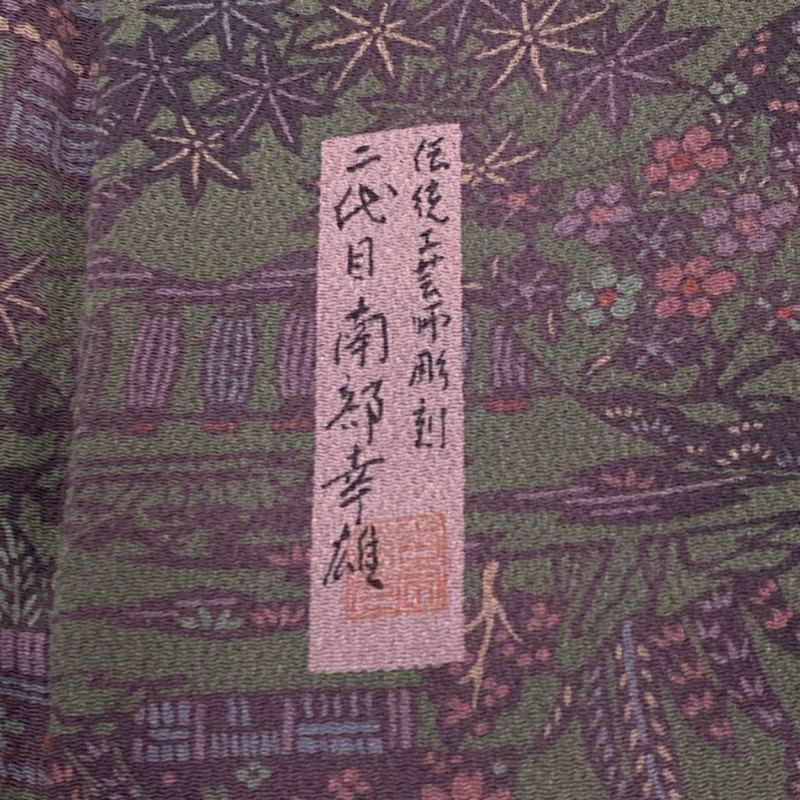 伝統工芸師彫刻
二代目南部幸雄